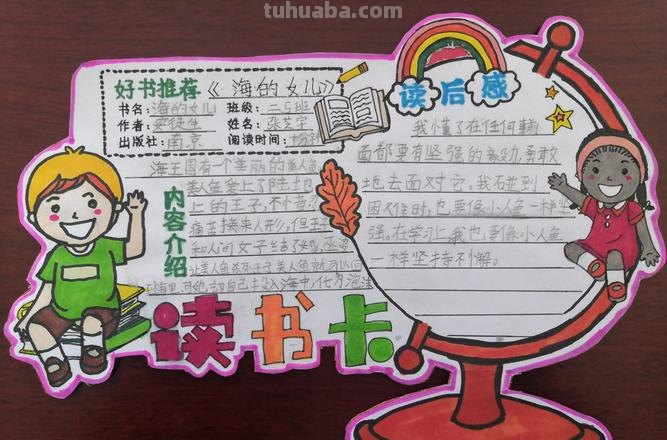 tuhuaba.com
好书推荐《海的女儿》
书名：海的女儿 班级：二5班
作者：安徒生 姓名：张芝宇
出版社：南京 阅读时间：十分钟
内容介绍
海王国有一个美丽的美人鱼
美人鱼爱上了陆地
上的王子，不惜忍
痛苦换来人形，但王子
和人间女子结了婚
让美人鱼杀死王子，美人鱼就可以回
到海里，可她却自己投入海中，化为泡沫
读后感
我懂了在任何
面都要有坚强的 勇敢
地去面对它。我在碰到
困难时，也要像小人鱼一样坚
强。在学习上我也要像小人鱼
一样坚持不懈。
读书卡